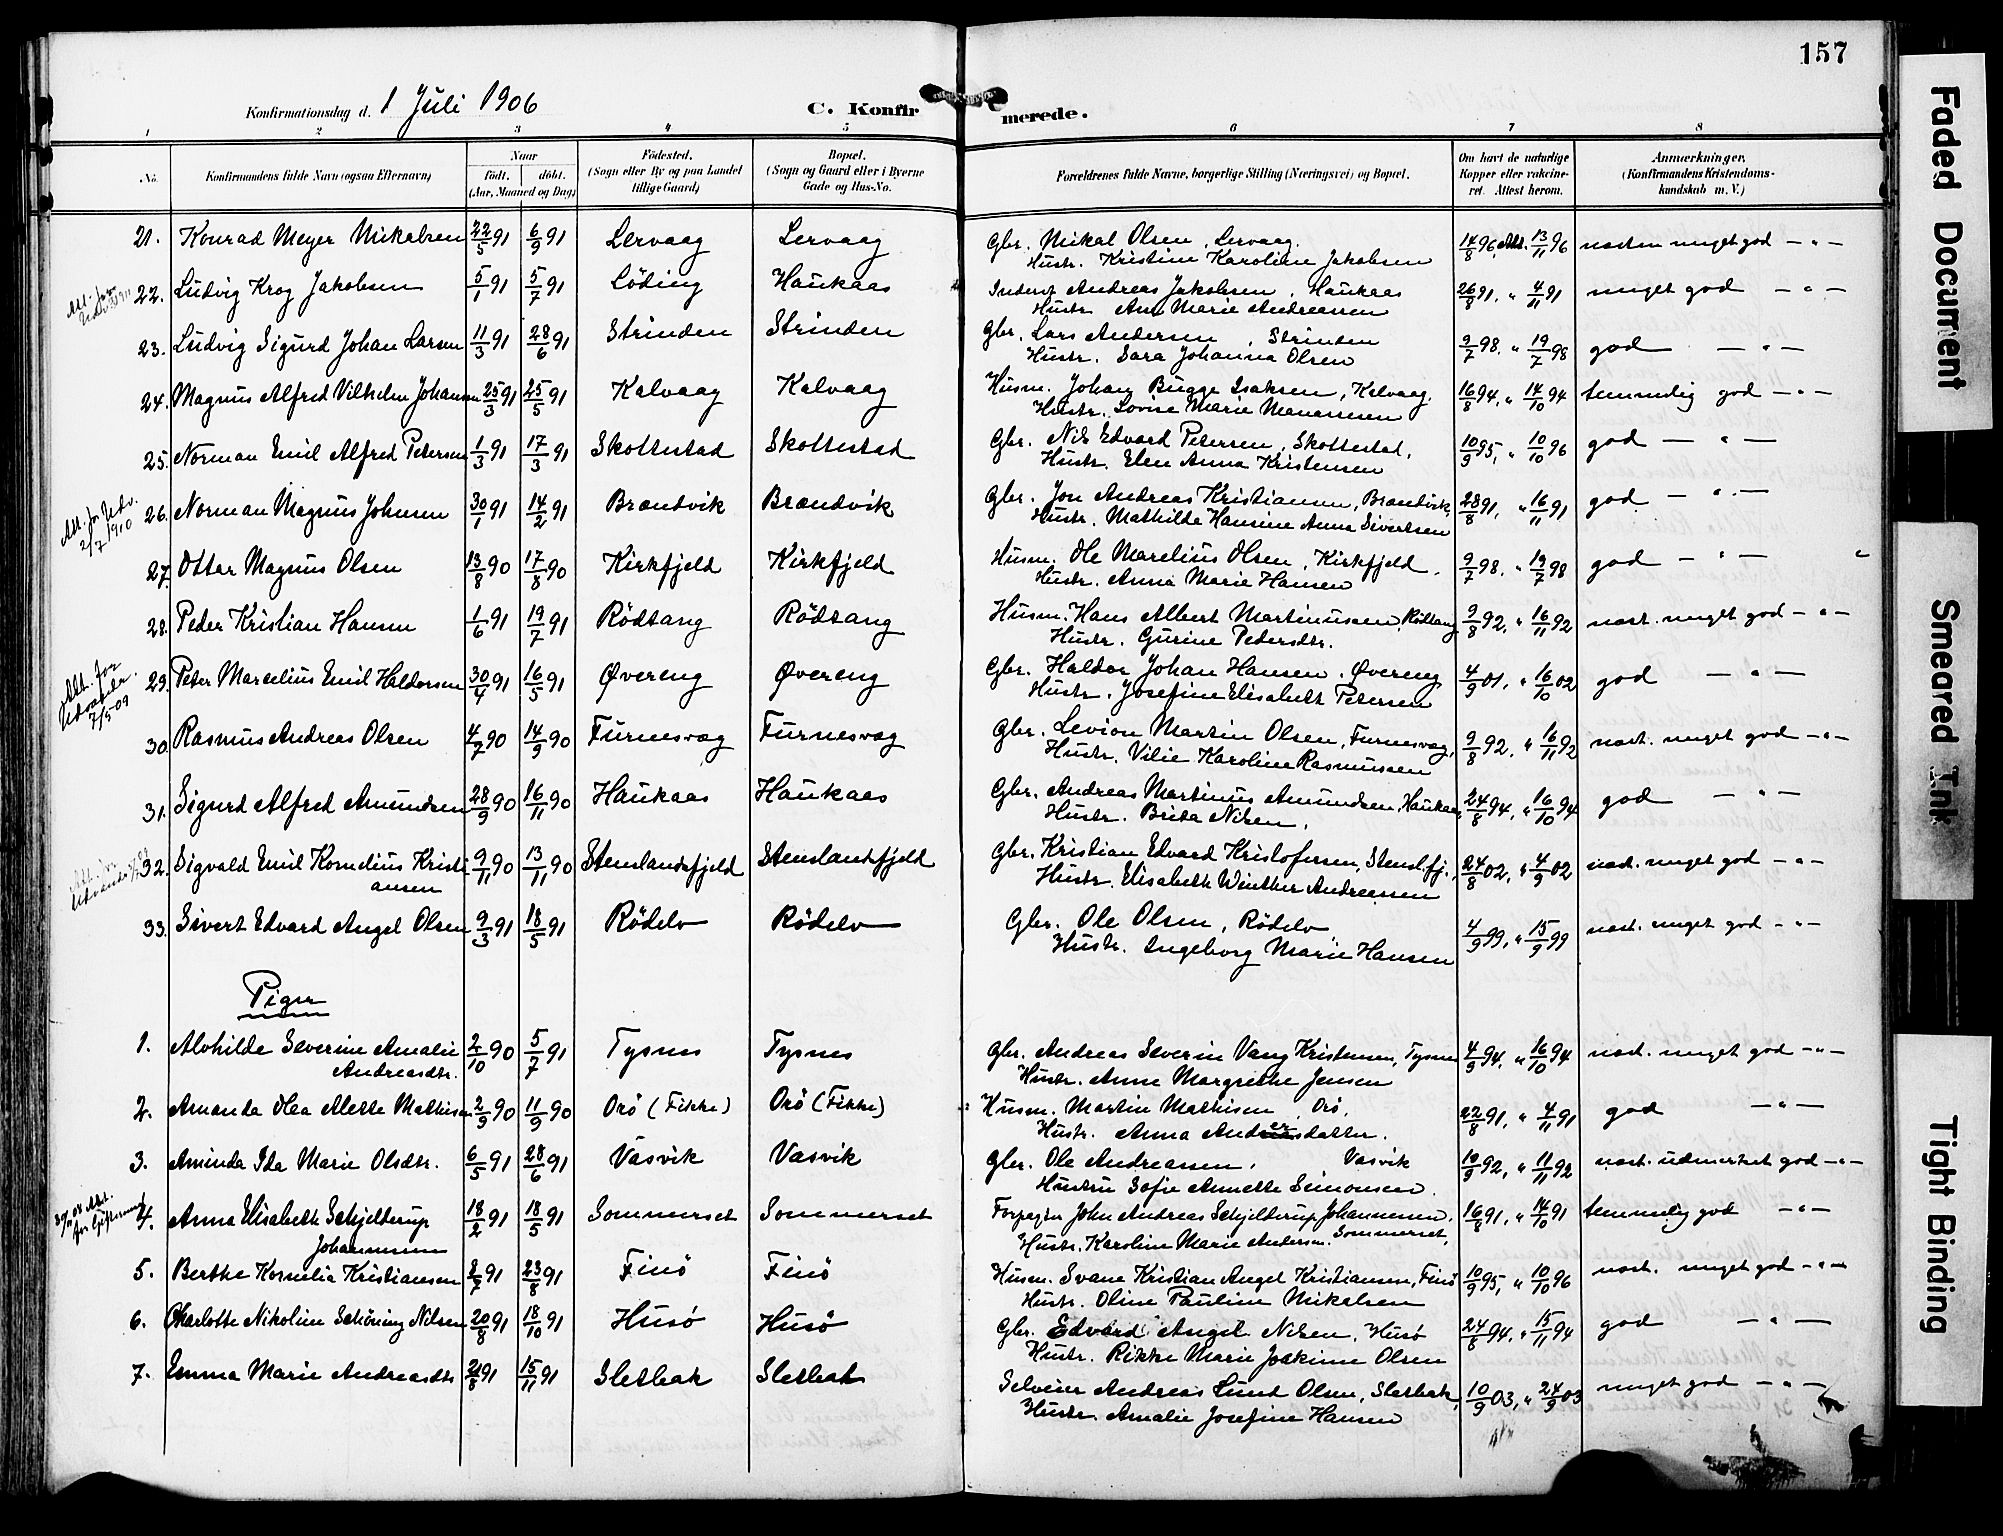 157
Konfirmationsdag d. 1 Juli 1906 C. Konfirmerede.
1 2 3 4 5 6 7 8
No. Konfirmandens fulde Navn (ogsaa Efternavn) Naar født. døbt. (Aar, Maaned og Dag) Fødested. (Sogn eller By og paa Landet tillige Gaard) Bopæl. (Sogn og Gaard eller i Byerne Gade og Hus-No. Forældrenes fulde Navne, borgerlige Stilling (Næringsvei) og Bopæl. Om havt de naturlige Kopper eller vakcineret. Attest herom. Anmærkninger. (Konfirmandens Kristendomskundskab m. V.)
21. Konrad Meyer Mikalsen 22/5 91 6/9 91 Lervaag Lervaag Gbr. Mikal Olsen, Lervaag. 14/8 96, Att. 13/11 96 næsten meget god - " -
Hustr. Kristine Karoline Jakobsen
22. Ludvig Krog Jakobsen 5/1 91 5/7 91 Löding Haukaas Inderst Andreas Jakobsen, Haukaas 26/8 91, " 4/11 91 meget god - " -
Hustr. Ane Marie Andreassen
23. Ludvig Sigurd Johan Larsen 11/3 91 28/6 91 Strinden Strinden Gbr. Lars Andersen, Strinden 9/7 98. " 19/7 98 god - " -
Hustr. Sara Johanna Olsen
24. Magnus Alfred Vilhelm Johansen 25/3 91 25/5 91 Kalvaag Kalvaag Husm. Johan Bugge Isaksen, Kalvaag. 16/8 94, " 14/10 94 temmelig god - " -
Hustr. Lovise Marie Manassesen
25. Norman Emil Alfred Petersen 1/3 91 17/3 91 Skottestad Skottestad Gbr. Nils Edvard Petersen, Skottestad, 10/9 95, " 10/10 96 god - " -
Hustr. Elen Anna Kristensen
Att. for Udv. 2/7 1910
26. Norman Magnus Johnsen 30/1 91 14/2 91 Brændvik Brændvik Gbr. Jon Andreas Kristiansen, Brændvik, 28/8 91, " 16/11 91 god - " -
Hustr. Mathilde Hansine Anna Sivertsen
27. Ottar Magnus Olsen 13/8 90 17/8 90 Kirkfjeld Kirkfjeld Husm. Ole Marelius Olsen, Kirkfjeld. 9/7 98. " 19/7 98 god - " -
Hustr. Anna Marie Hansen
28. Peder Kristian Hansen 1/6 91 19/7 91 Rödtang Rödtang Husm. Hans Albert Martinussen, Rödtang 9/8 92, " 16/11 92 næst. meget god - " -
Hustr. Gurine Pedersdtr.
Att. for Udvandr. 7/5 09
29. Peter Marcelius Emil Haldorsen 30/4 91 16/5 91 Øvereng Øvereng Gbr. Haldor Johan Hansen, Øvereng 4/9 01, " 16/10 02 god - " -
Hustr. Josefine Elisabeth Petersen
30. Rasmus Andreas Olsen 4/7 90 14/9 90 Furnesvag Furnesvag Gbr. Levion Martin Olsen, Furnesvag, 9/8 92, " 16/11 92 næst. meget god - " -
Hustr. Vilie Karoline Rasmussen
31. Sigurd Alfred Amundsen 28/9 90 16/11 90 Haukaas Haukaas Gbr. Andreas Martinus Amundsen, Haukaas, 24/8 94, " 16/10 94 god - " -
Hustr. Brita Nilsen.
32. Sigvald Emil Kornelius Kristiansen 9/11 90 13/11 90 Stenslandsfjeld Stenslandsfjeld Gbr. Kristian Edvard Kristofersen, Stenslfj., 24/8 02, " 4/9 02 næst. meget god - " -
Hustr. Elisabeth Winther Andreassen
33. Sivert Edvard Angel Olsen 9/3 91 18/5 91 Rödelv Rödelv Gbr. Ole Olsen, Rödelv 4/9 99, " 15/9 99 næst. meget god - " -
Hustr. Ingeborg Marie Hansen
Piger
1. Alvhilde Severine Amalie Andreasdtr. 2/10 90 5/7 91 Tysnes Tysnes Gbr. Andreas Severin Vang Kristensen, Tysnes 4/9 94, " 16/10 94 næst. meget god - " -
Hustr. Anne Margrethe Jensen
2. Amanda Olea Alette Mathisen 2/9 90 11/9 90 Orö (Fikke) Orö (Fikke) Husm. Martin Mathisen, Orö. 22/8 91, " 4/11 91 god - " -
Hustr. Anna Andersdatter.
3. Aminda Ida Marie Olsdtr. 6/5 91 28/6 91 Vasvik Vasvik Gbr. Ole Andreassen, Vasvik 10/9 92, " 11/11 92 næst. udmerket god - " -
Hustru Sofie Annette Simonsen.
4. Anna Elisabeth Schjelderup Johannessen 18/2 91 18/5 91 Sommerset Sommerset Forpagter John Andreas Schjelderup Johannessen. 16/8 91, " 14/10 91 temmelig god - " -
Hustr. Karoline Marie Andersen. Sommerset,
5. Berthe Kornelia Kristiansen 8/7 91 23/8 91 Finö Finö Husm. Svane Kristian Angel Kristiansen, Finö 10/9 95, " 10/10 96 næst. meget god - " -
Hustr. Oline Pauline Mikalsen
6. Charlotte Nikoline Schöning Nilsen 20/8 91 18/10 91 Husö Husö Gbr. Edvard Angel Nilsen, Husø 24/8 94, " 15/11 94 god - " -
Hustr. Rikke Marie Joakime Olsen
7. Emma Marie Andreasdtr 2/8 91 15/11 91 Sletbak Sletbak Selveier Andreas Lund Olsen, Sletbak, 10/9 03, " 24/9 03 meget god - " -
Hustr. Amalie Josefine Hansen
Faded Document
Smeared Ink
Tight Binding